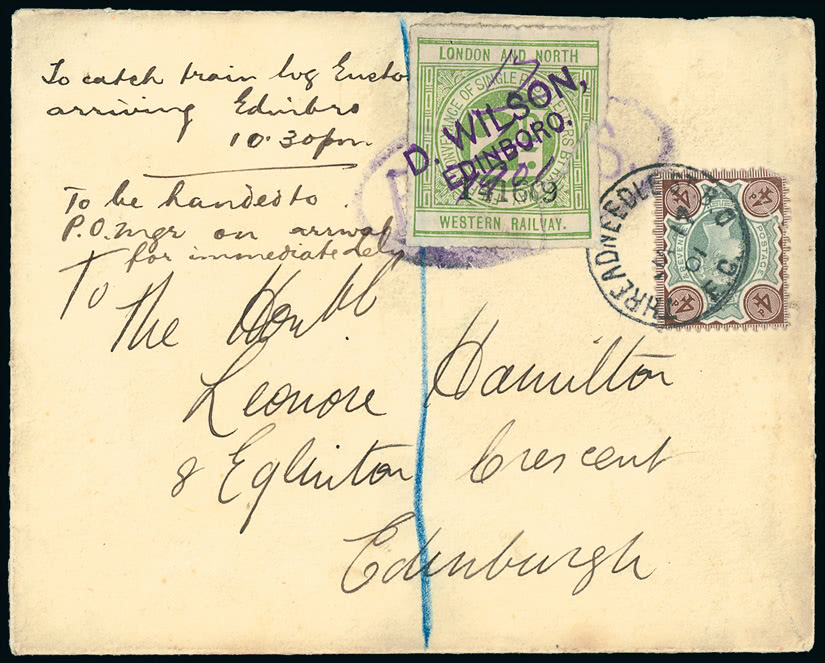 To catch train lvg Eusto
arriving Edinbro
10.30pm
To be handed to
P.O. mgr on arrival
for immediate dely
To
The Honbl
Leonore Hamilton
8 Eglinton Crescent
Edinburgh
LONDON AND NORTH
OF SINGLE POST LETTERS BY
WESTERN RAILWAY.
D. WILSON,
EDINBORO.
THREADNEEDLE
E.C.
01
POSTAGE
4D
4D
4D
4D